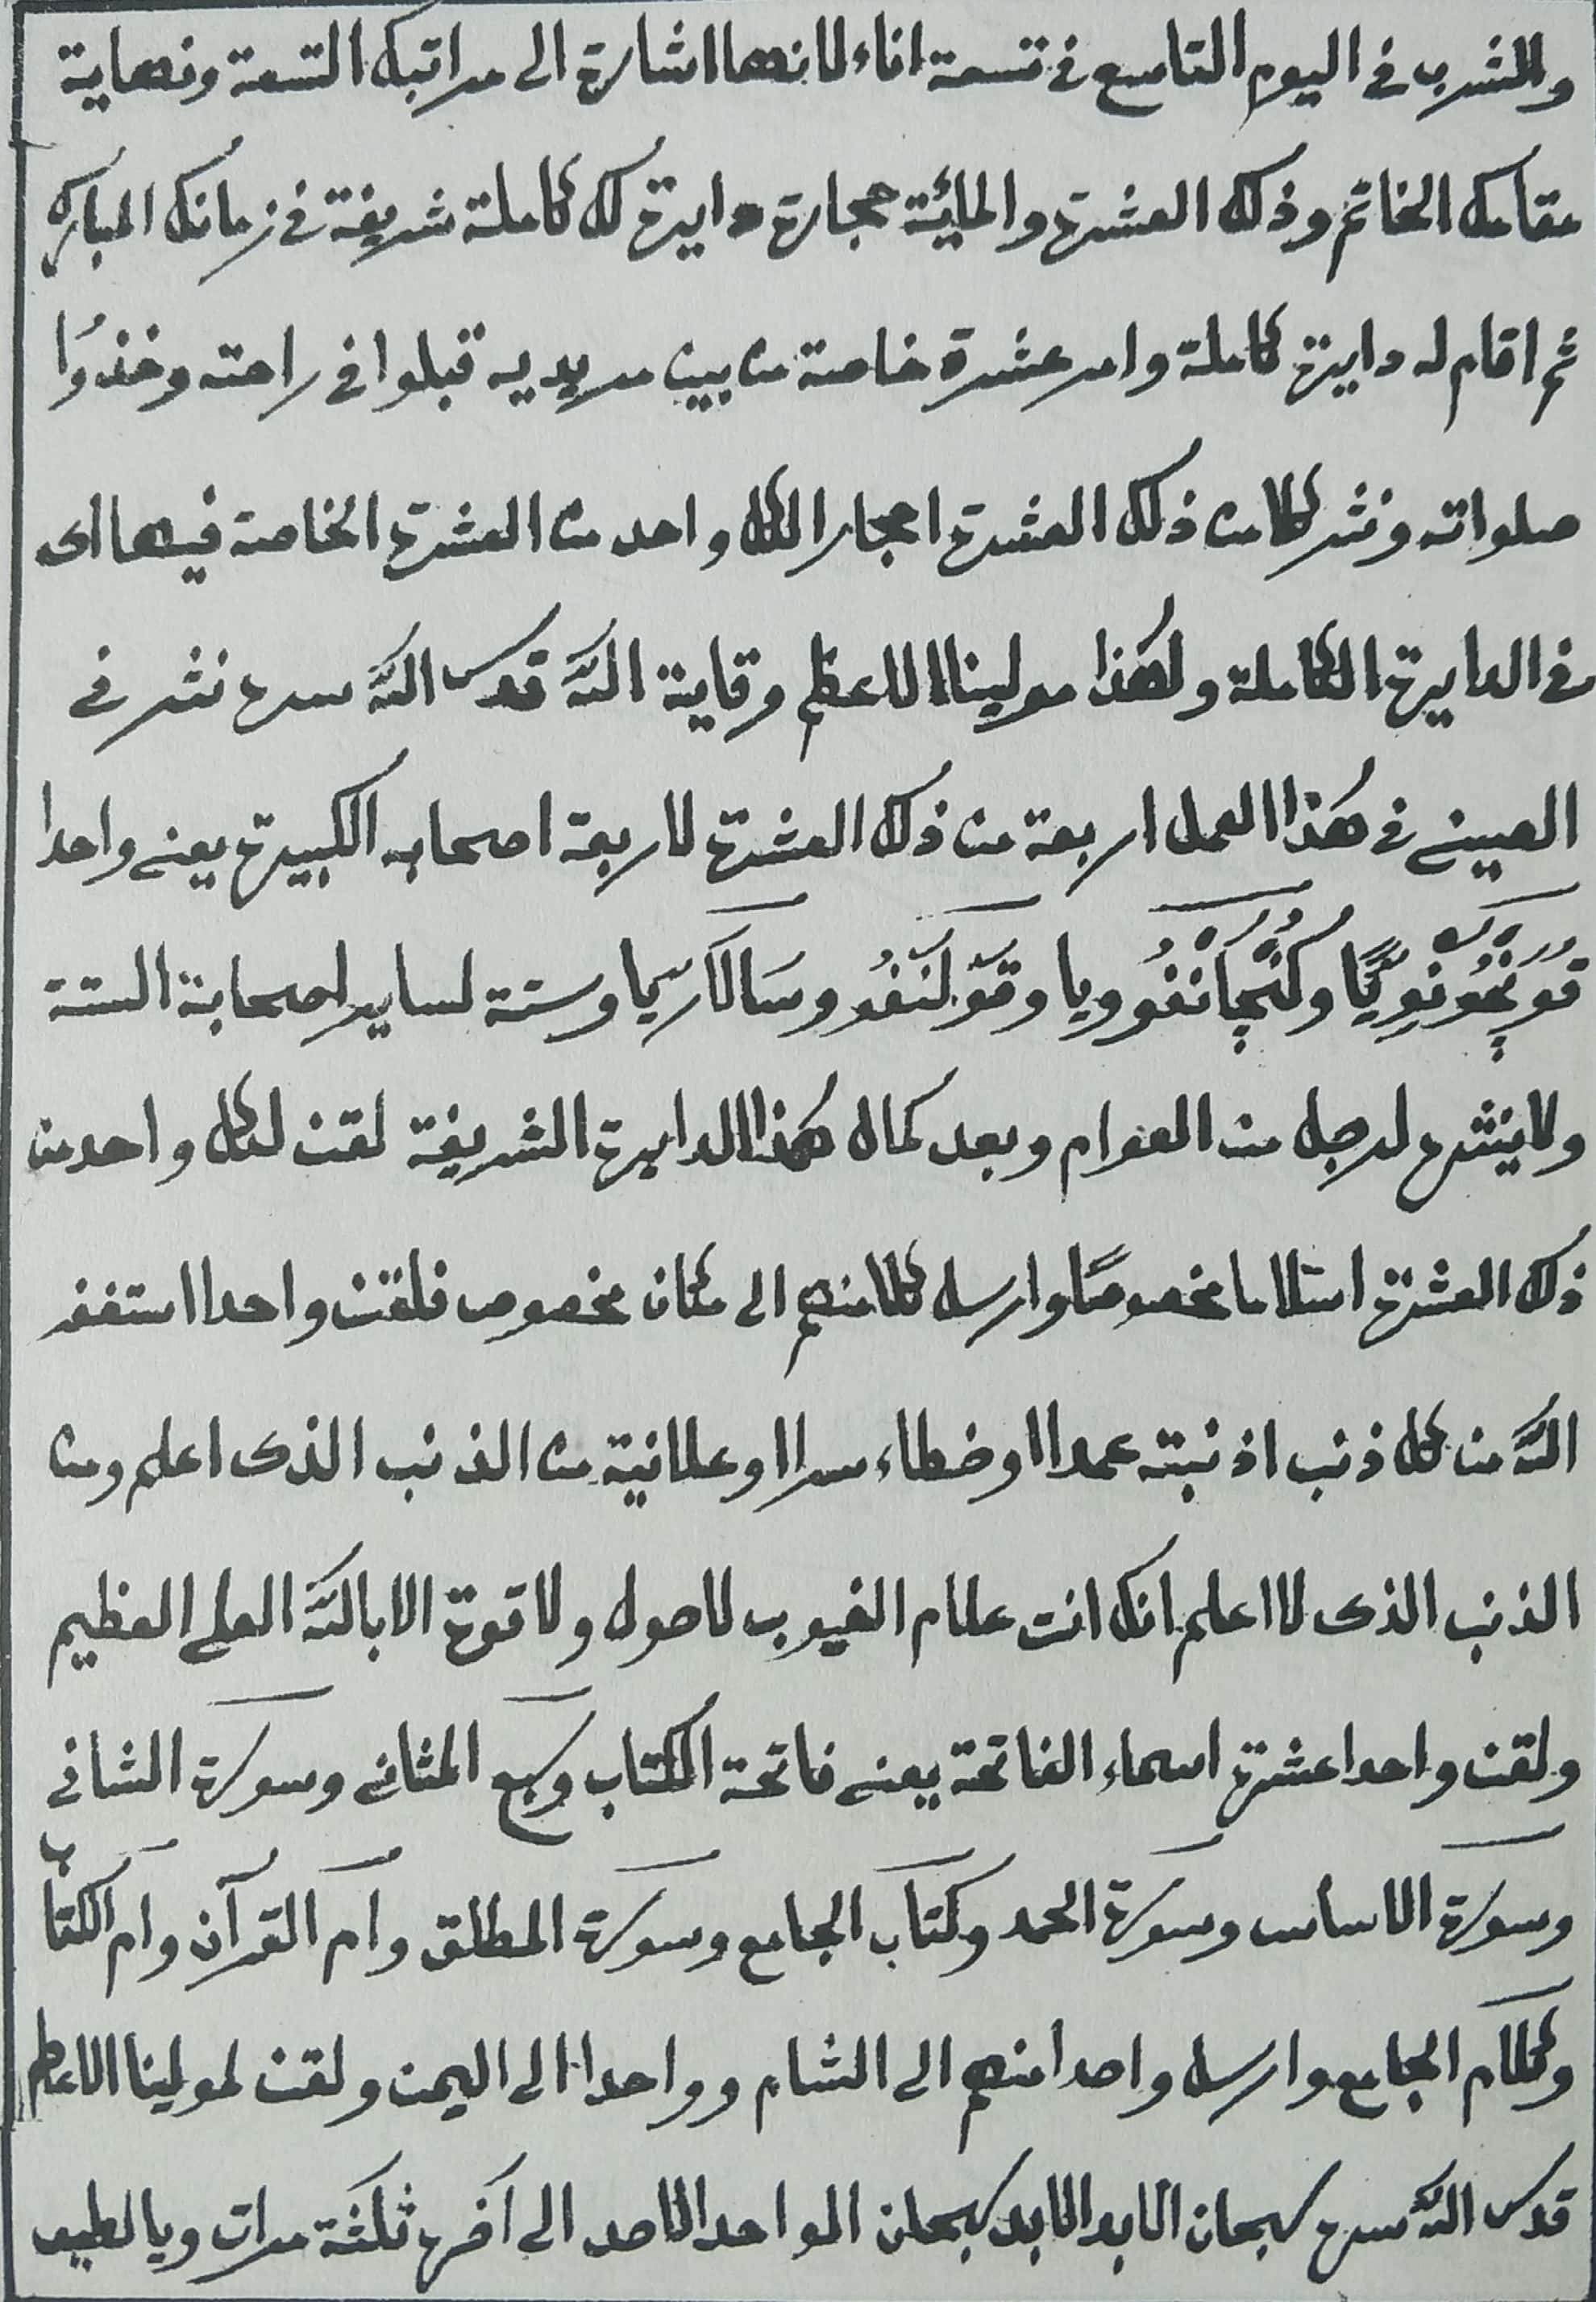 والشرب في اليوم التاسع في تسعة اناء لانها اشارة الى مراتبك التسعة ونهاية
مقامك الخاتم وذلك العشرة والمائية حجارة دايرة لك كاملة شريفة في زمانك المبارك
ثم اقام له دايرة كاملة وامر عشرة خاصة من بين مريديه قبلوا في راحته وخذوا
صلواته ونثر كلا من ذلك العشرة احجارا لكل واحد من العشرة الخاصة فيها اى
في الدايرة الكاملة ولهذا مولينا الاعظم وقاية الله قدس الله سره نثر في
الصيني في هذا العمل اربعة من ذلك العشرة لاربعة اصحابه الكبيرة يعني واحدا
وسالار سيما وستة لساير اصحابة الستة
ولا ينثره لرجل من العوام وبعد كمال هذا الدايرة الشريفة لقن لكل واحد من
ذلك العشرة استلاما مخصوصًا وارسل كلا منهم الى مكان مخصوص فلقن واحدا استغفر
الله من كل ذنب اذنبته عمدا او خطاء سرا او علانية من الذنب الذى اعلم ومن
الذنب الذى لا اعلم انك انت علام الغيوب لا حول ولا قوة الا بالله العلي العظيم
ولقن واحدا عشرة اسماء الفاتحة يعني فاتحة الكتاب وسبع المثاني وسورة الشافي
وسورة الاساس وسورة الحمد وكتاب الجامع وسورة المطلق وام القرآن وام الكتاب
وكلام الجامع وارسل واحدا منهم الى الشام وواحدا الى اليمن ولقن لمولينا الاعظم
قدس الله سره سبحان الابد الابد سبحان الواحد الاحد الى آخره ثلثة مرات ويا لطيف